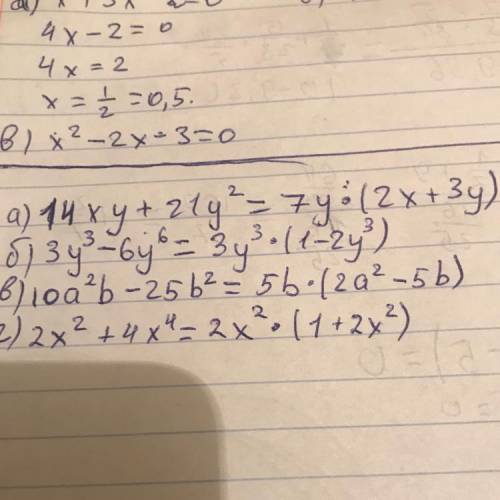 4x-2=0
4x=2
x=1/2=0,5.
в) x²-2x-3=0
а) 14xy+21y²=7y·(2x+3y)
б) 3y³-6y⁶=3y³·(1-2y³)
в) 10a²b-25b²=5b·(2a²-5b)
г) 2x²+4x⁴=2x²·(1+2x²)